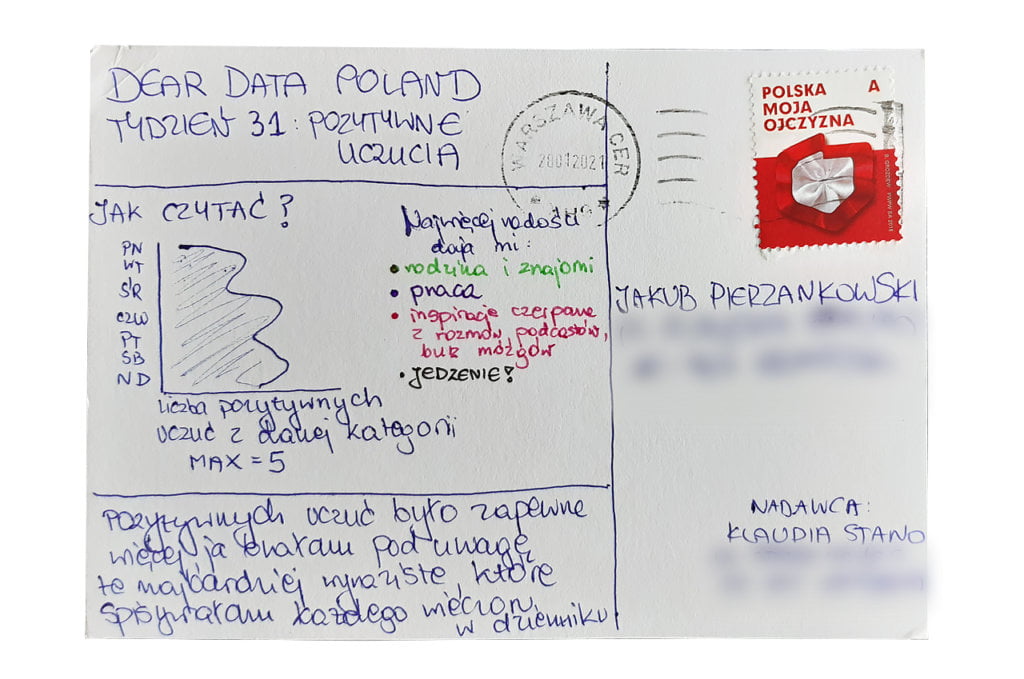 DEAR DATA POLAND
TYDZIEŃ 31: POZYTYWNE
UCZUCIA
JAK CZYTAĆ?
PN
WT
ŚR
CZW
PT
SB
ND
Liczba pozytywnych
uczuć z danej kategorii
MAX = 5
Najwięcej radości
dają mi:
• rodzina i znajomi
• praca
• inspiracje czerpane
z rozmów, podcastów,
burz mózgów
• JEDZENIE!
pozytywnych uczuć było zapewne
więcej ja brałam pod uwagę
te najbardziej wyraziste, które
spisywałam każdego wieczoru
w dzienniku
WARSZAWA CER
28012021
POLSKA A
MOJA
OJCZYZNA
JAKUB PIERZANKOWSKI
NADAWCA:
KLAUDIA STANO